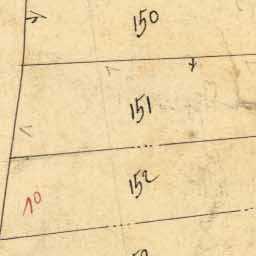 150
151
152
10